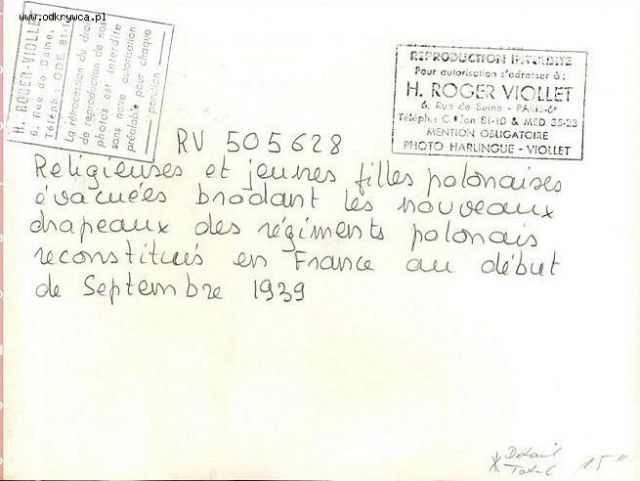 www.odkrywca.pl
H. ROGER-VIOLLET
6, Rue de Seine,
Téléph.: ODE. 81-10
La rétrocession du droit
de reproduction de nos
photos est interdite
sans notre autorisation
préalable pour chaque
parution
REPRODUCTION INTERDITE
Pour autorisation s'adresser à :
H. ROGER VIOLLET
6, Rue de Seine - PARIS-6e
Téléph.: 81-10 & MED. 35-23
MENTION OBLIGATOIRE
PHOTO HARLINGUE - VIOLLET
RV 505628
Religieuses et jeunes filles polonaises
évacuées brodant les nouveaux
drapeaux des régiments polonais
reconstitués en France au début
de Septembre 1939
Détail
Total 15"